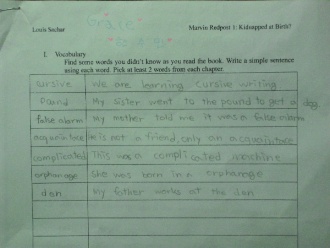 Grace
Louis Sachar
Marvin Redpost 1: Kidnapped at Birth?
I. Vocabulary
Find some words you didn't know as you read the book. Write a simple sentence
using each word. Pick at least 2 words from each chapter.
cursive We are learning cursive writing
pound My sister went to the pound to get a dog.
false alarm My mother told me it was a false alarm
is not a friend, only an
complicated This was a complicated machine
orphanage She was born in a orphanage
den My father works at the den